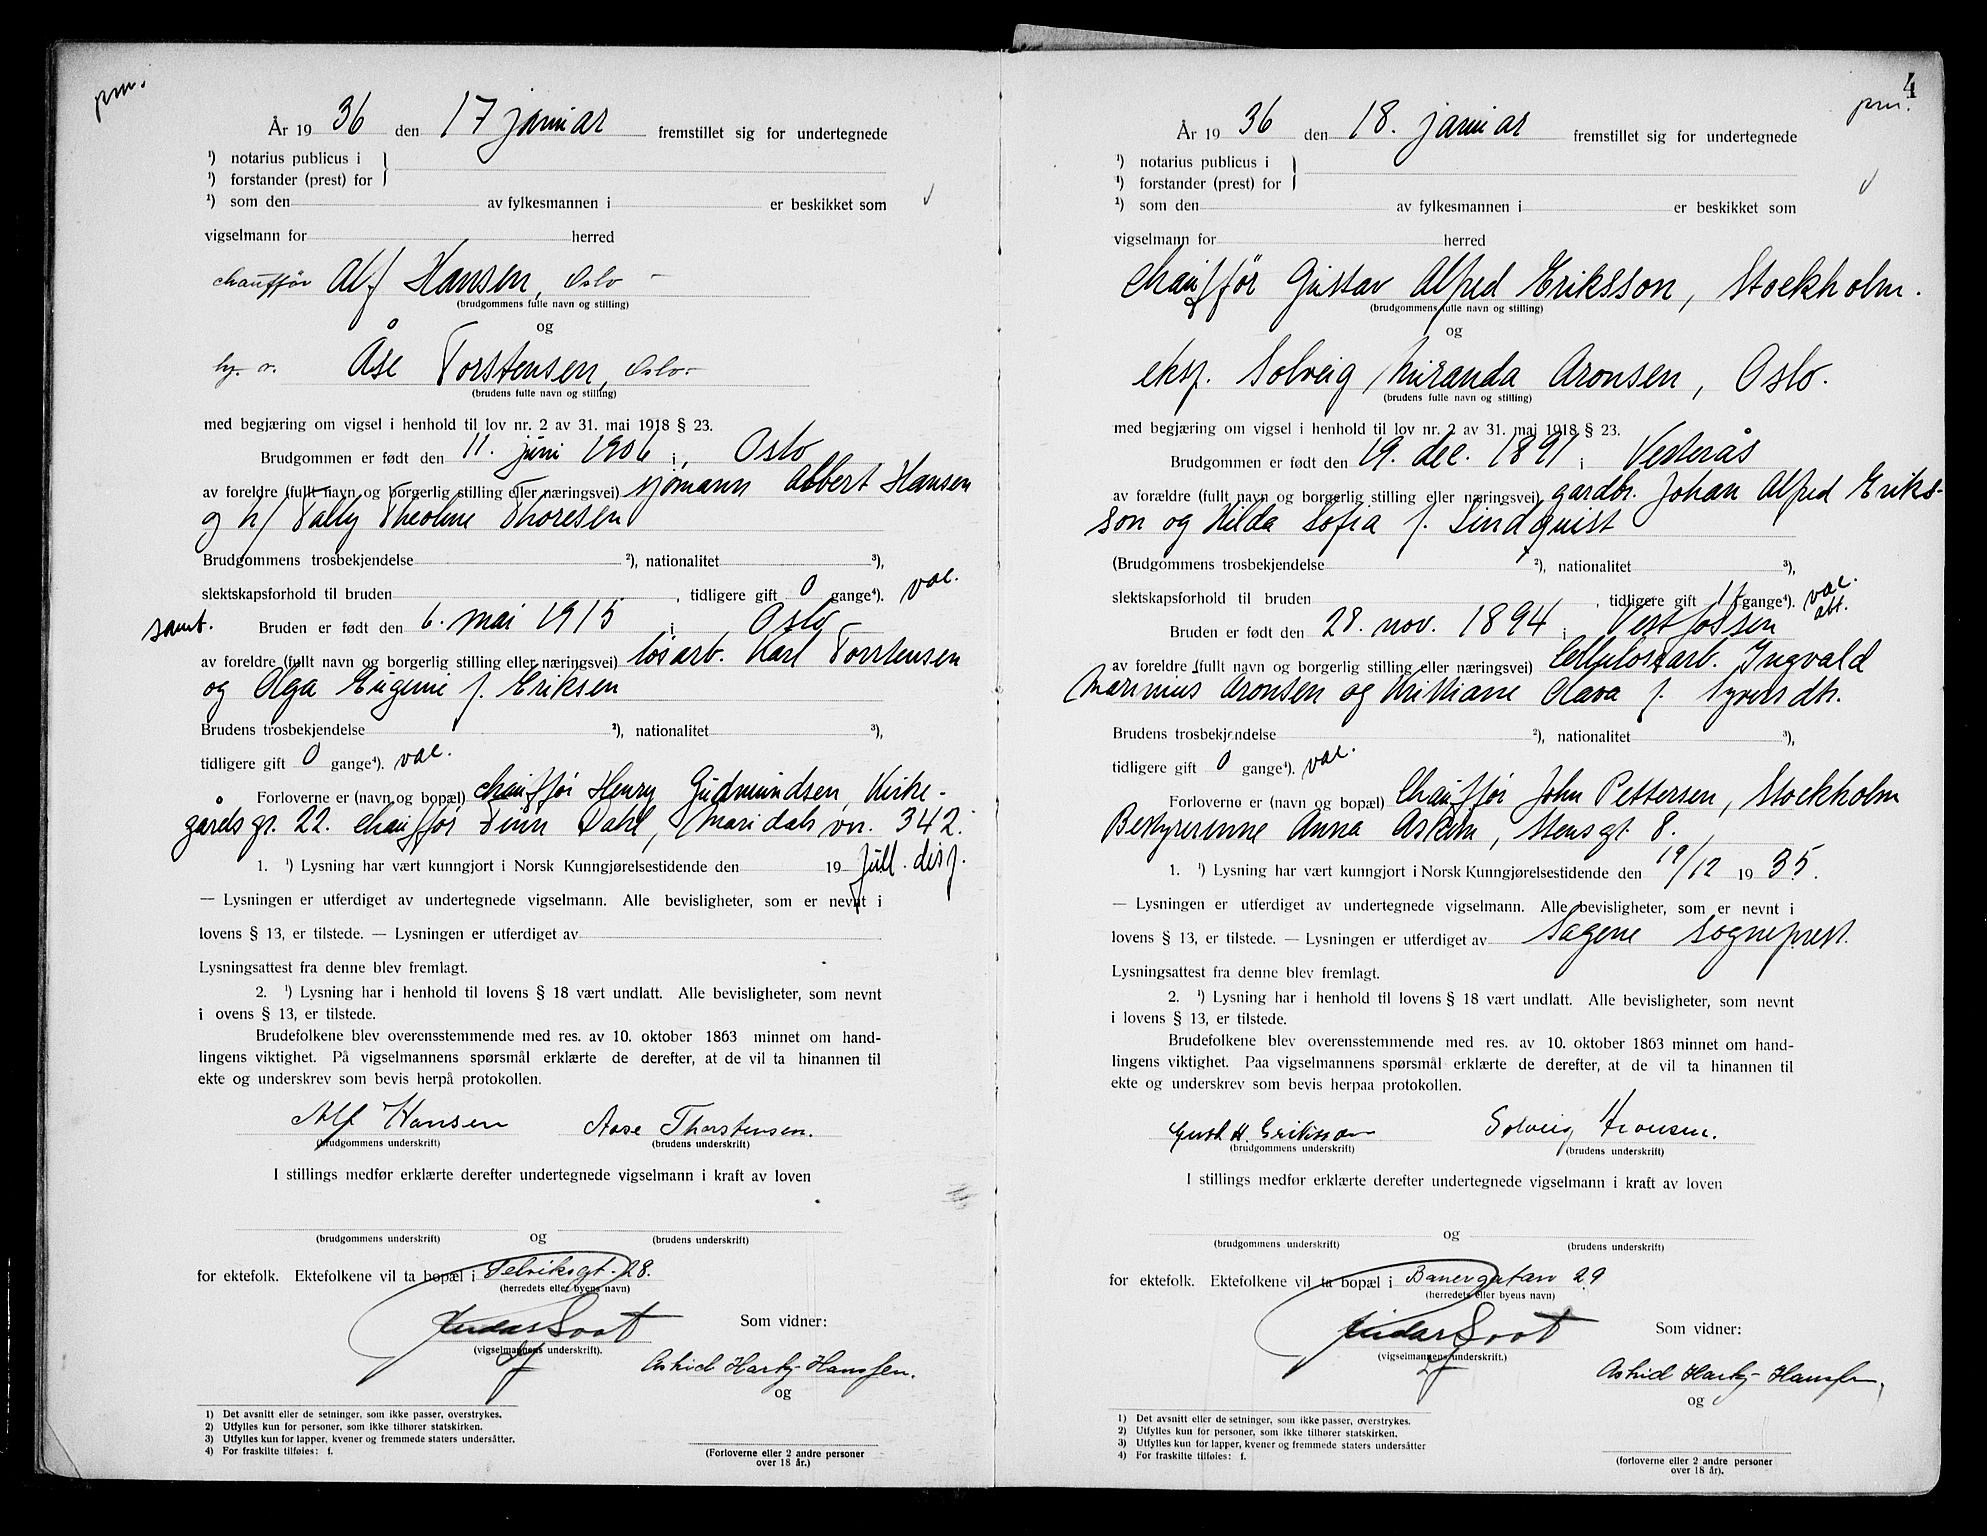 pm.
År 19 36 den 17 januar fremstillet sig for undertegnede
¹) notarius publicus i
¹) forstander (prest) for
¹) som den av fylkesmannen i er beskikket som
vigselmann for herred
chauffør Alf Hansen, Oslo
(brudgommens fulle navn og stilling)
og
Åse Torstensen, Oslo
(brudens fulle navn og stilling)
med begjæring om vigsel i henhold til lov nr. 2 av 31. mai 1918 § 23.
Brudgommen er født den 11. juni 1906 i, Oslo
av foreldre (fullt navn og borgerlig stilling eller næringsvei) sjømann Albert Hansen
og h/ Tally Theoline Thoresen
Brudgommens trosbekjendelse ²), nationalitet ³),
slektskapsforhold til bruden , tidligere gift 0 gange⁴). vae.
samt. Bruden er født den 6. mai 1915 i Oslo
av foreldre (fullt navn og borgerlig stilling eller næringsvei) løsarb. Karl Torstensen
og Olga Eugenie f. Eriksen
Brudens trosbekjendelse ²), nationalitet ³),
tidligere gift 0 gange⁴). vae.
Forloverne er (navn og bopæl) chauffør Henry Gudmundsen, Kirke-
gårds gt. 22. chauffør Finn Dahl, Maridals vn. 342.
1. ¹) Lysning har vært kunngjort i Norsk Kunngjørelsestidende den 19 full. disp.
— Lysningen er utferdiget av undertegnede vigselmann. Alle bevisligheter, som er nevnt i
lovens § 13, er tilstede. — Lysningen er utferdiget av
Lysningsattest fra denne blev fremlagt.
2. ¹) Lysning har i henhold til lovens § 18 vært undlatt. Alle bevisligheter, som nevnt
i ovens § 13, er tilstede.
Brudefolkene blev overensstemmende med res. av 10. oktober 1863 minnet om hand-
lingens viktighet. På vigselmannens spørsmål erklærte de derefter, at de vil ta hinannen til
ekte og underskrev som bevis herpå protokollen.
Alf Hansen Aase Thorstensen.
(brudgommens underskrift) (brudens underskrift)
I stillings medfør erklærte derefter undertegnede vigselmann i kraft av loven
og
(brudgommens underskrift) (brudens underskrift)
for ektefolk. Ektefolkene vil ta bopæl i 28.
(herredets eller byens navn)
Som vidner:
(vigselmannens underskrift).
Astrid Harby-Hanssen.
og
1) Det avsnitt eller de setninger, som ikke passer, overstrykes.
2) Utfylles kun for personer, som ikke tilhører statskirken.
3) Utfylles kun for lapper, kvener og fremmede staters undersåtter.
4) For fraskilte tilføies: f.
(Forloverne eller 2 andre personer
over 18 år.)
4
pm.
År 19 36 den 18. januar fremstillet sig for undertegnede
¹) notarius publicus i
¹) forstander (prest) for
¹) som den av fylkesmannen i er beskikket som
vigselmann for herred
Chauffør Gustav Alfred Eriksson, Stockholm.
(brudgommens fulle navn og stilling)
og
eksp. Solveig Miranda Aronsen, Oslo.
(brudens fulle navn og stilling)
med begjæring om vigsel i henhold til lov nr. 2 av 31. mai 1918 § 23.
Brudgommen er født den 19. dec. 1891 i Vesterås
av forældre (fullt navn og borgerlig stilling eller næringsvei) gardbr. Johan Alfred Eriks-
son og Hilda Sofia f. Lindquist
(Brudgommens trosbekjendelse ²), nationalitet ³),
slektskapsforhold til bruden , tidligere gift 1 f gange⁴). vae. att.
Bruden er født den 28. nov. 1894 i Vestfossen
av foreldre (fullt navn og borgerlig stilling eller næringsvei) Cellulosarb. Ingvald
Marinius Aronsen og Kristiane Olava f. Syversdtr.
Brudens trosbekjendelse ²), nationalitet ³),
tidligere gift 0 gange⁴). vae.
Forloverne er (navn og bopæl) Chauffør John Pettersen, Stockholm
Bestyrerinne Anna Askim, Stensgt. 8.
1. ¹) Lysning har vært kunngjort i Norsk Kunngjørelsestidende den 19/12 19 35.
— Lysningen er utferdiget av undertegnede vigselmann. Alle bevisligheter, som er nevnt i
lovens § 13, er tilstede. — Lysningen er utferdiget av Sagene sogneprest.
Lysningsattest fra denne blev fremlagt.
2. ¹) Lysning har i henhold til lovens § 18 vært undlatt. Alle bevisligheter, som nevnt
i lovens § 13, er tilstede.
Brudefolkene blev overensstemmende med res. av 10. oktober 1863 minnet om hand-
lingens viktighet. Paa vigselmannens spørsmål erklærte de derefter, at de vil ta hinannen til
ekte og underskrev som bevis herpaa protokollen.
Gust. A. Eriksson Solveig Aronsen.
(brudgommens underskrift) (brudens underskrift)
I stillings medfør erklærte derefter undertegnede vigselmann i kraft av loven
og
(brudgommens underskrift) (brudens underskrift)
for ektefolk. Ektefolkene vil ta bopæl i Banergatan 29
(herredets eller byens navn)
Som vidner:
(vigselmannens underskrift.)
Astrid Harby-Hanssen,
og
1) Det avsnitt eller de setninger, som ikke passer, overstrykes.
2) Utfylles kun for personer, som ikke tilhører statskirken.
3) Utfylles kun for lapper, kvener og fremmede staters undersåtter
4) For fraskilte tilføies: f.
(forloverne eller 2 andre personer
over 18 år).